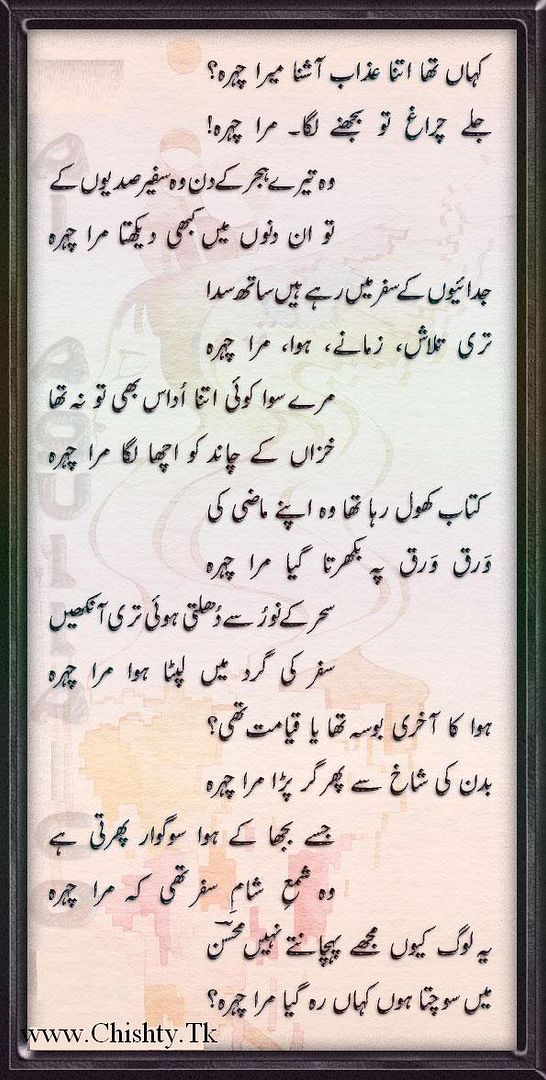 کہاں تھا اتنا عذاب آشنا میرا چہرہ؟
جلے چراغ تو بجھنے لگا۔ مرا چہرہ!
وہ تیرے ہجر کے دن وہ سفیر صدیوں کے
تو ان دنوں میں کبھی دیکھتا مرا چہرہ
جدائیوں کے سفر میں رہے ہیں ساتھ سدا
تری تلاش، زمانے، ہوا، مرا چہرہ
مرے سوا کوئی اتنا اُداس بھی تو نہ تھا
خزاں کے چاند کو اچھا لگا مرا چہرہ
کتاب کھول رہا تھا وہ اپنے ماضی کی
وَرق وَرق پہ بکھرتا گیا مرا چہرہ
سحر کے نورُ سے دُھلتی ہوئی تری آنکھیں
سفر کی گرد میں لپٹا ہوا مرا چہرہ
ہوا کا آخری بوسہ تھا یا قیامت تھی؟
بدن کی شاخ سے پھر گر پڑا مرا چہرہ
جسے بجھا کے ہوا سوگوار پھرتی ہے
وہ شمعِ شامِ سفر تھی کہ مرا چہرہ
یہ لوگ کیوں مجھے پہچانتے نہیں محسنؔ
میں سوچتا ہوں کہاں رہ گیا مرا چہرہ؟
www.Chishty.Tk